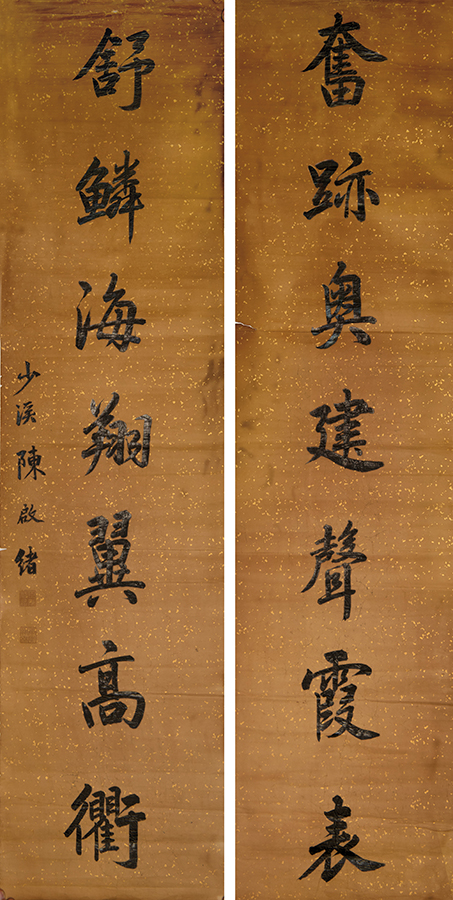 奮跡奥建聲霞表
舒鱗海翔翼高衢
少溪陳啟緒